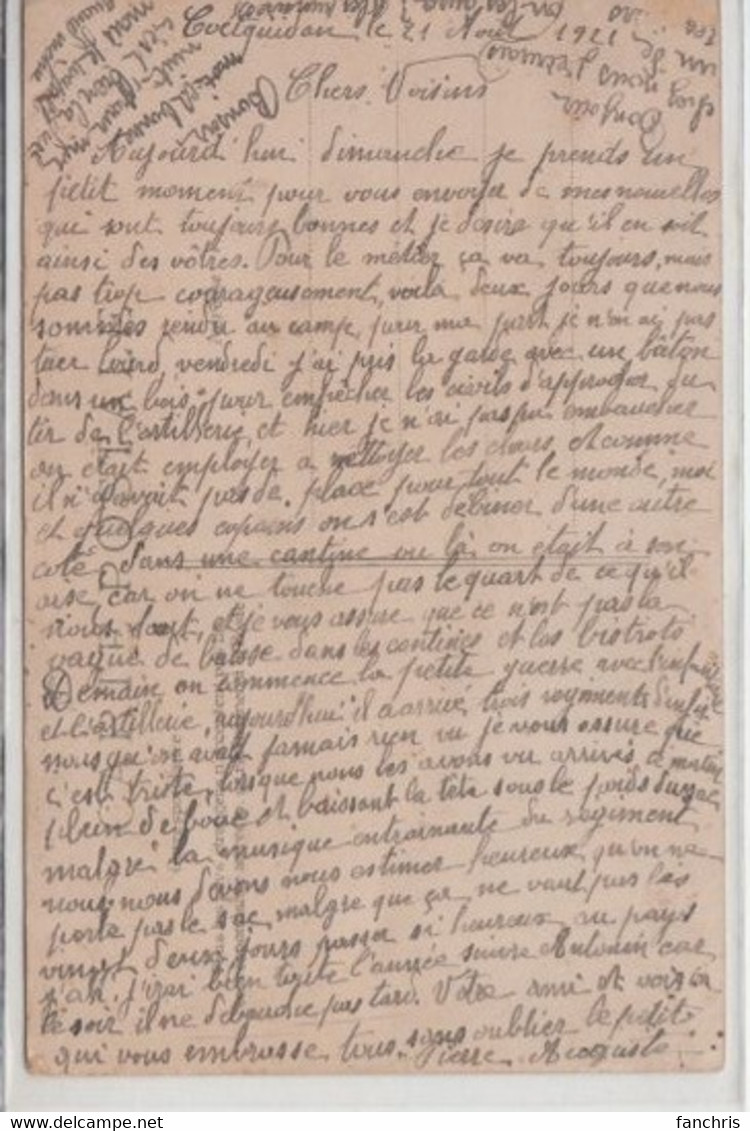 Coëtquidan le 21 Août 1921
Chers Voisins
Aujourd'hui dimanche je prends un
petit moment pour vous envoyer de mes nouvelles
qui sont toujours bonnes et je désire qu'il en soit
ainsi des vôtres. Pour le métier ça va toujours, mais
pas trop courageusement, voila deux jours que nous
sommes rendu au camp, pour ma part je n'en ai pas
lourd, vendredi j'ai pris la garde avec un bâton
dans un bois pour empêcher les civils d'approcher du
tir de l'artillerie, et hier je n'ai pas pu embaucher
on était employer a nettoyer les et comme
il n'avait pas de place pour tout le monde, moi
et quelques copains on s'est débiner d'une autre
coté dans une cantine ou là on était à son
aise, car on ne touche pas le quart de ce qu'il
nous faut, et je vous assure que ce n'est pas la
vague de baisse dans les cantines et les bistrots
Demain on commence la petite guerre avec l'infanterie
et l'artillerie, aujourd'hui il a arrivé trois regiments d'infie
nous qu'on avait jamais rien vu je vous assure que
c'est triste, lorsque nous les avons vu arrivés ce matin
plein de boue et baissant la tête sous le poids du sac
malgré la musique entrainante du regiment
nous nous devons nous estimer heureux qu'on ne
porte pas le sac, malgre que ça ne vaut pas les
vingt deux jours passer si heureux au pays
j'irai bien l'année Antonin car
le soir il ne débauche pas tard. Votre ami et voisin
qui vous embrasse tous sans oublier le petit
Pierre Auguste
Bonsoir
Bonjour
fanchris